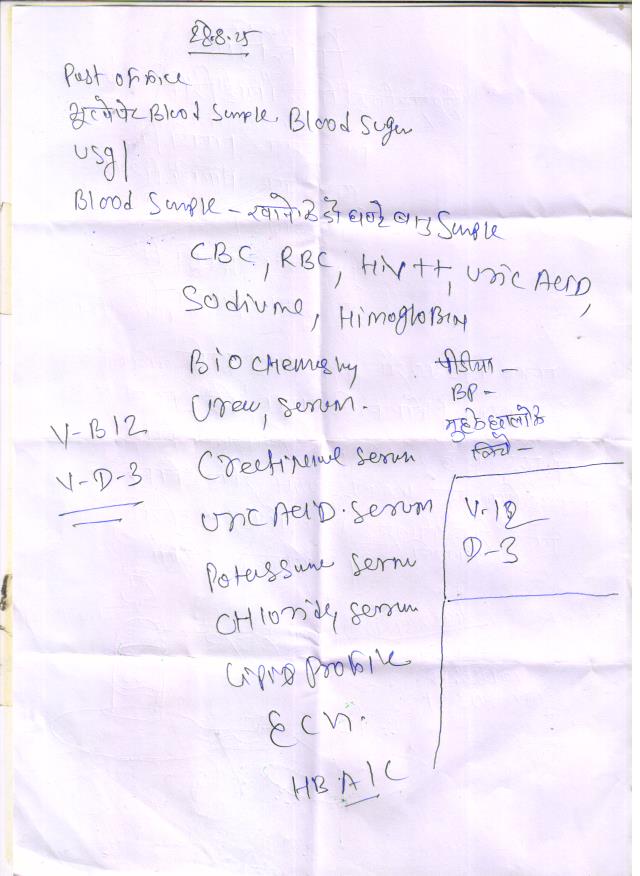 28.8.25
Post office
भूखे पेट Blood Sample, Blood Suger
USG
Blood Sample - खाने के दो घन्टे बाद Sample
CBC, RBC, HIV ++, Uric ACID,
Sodiume, HimogloBIN
BioCHemeshy
Urea, Serum.
V-B12
V-D-3
Creetinine serum
Uric ACID. Serum
Potassume serm
CHloride, serum
Lipid Profile
ECG.
HBA1C
पीडिया -
BP -
मुह के छालो के
लिये -
V-12
D-3